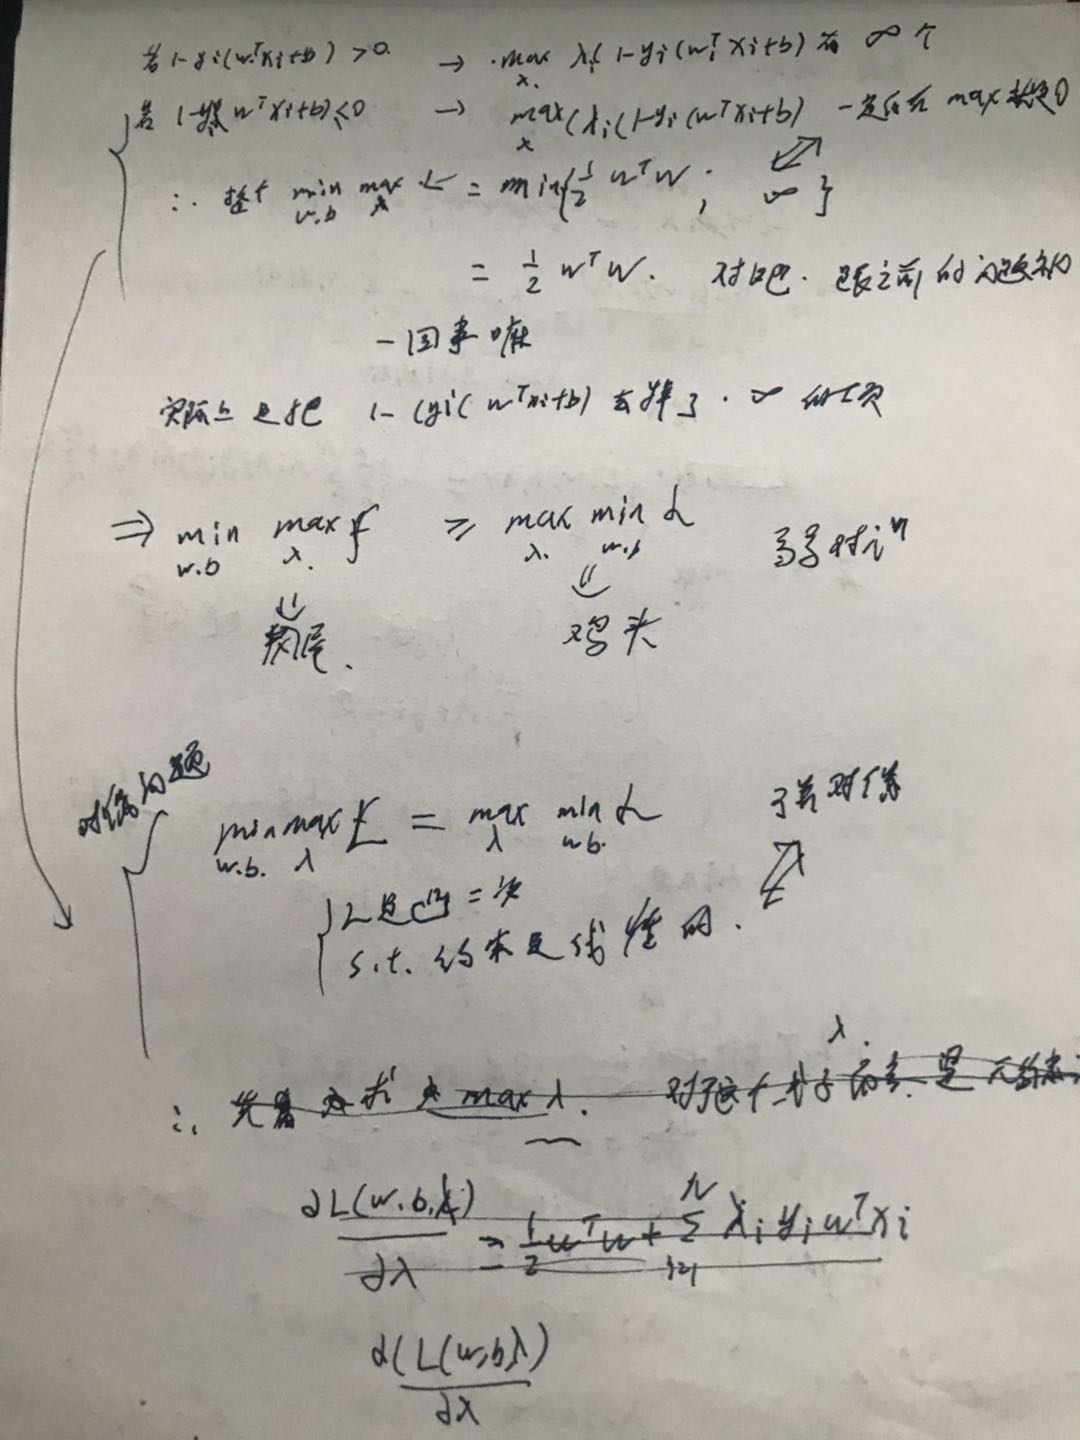 若 1-yi(wᵀxi+b) >0. → max λ λi(1-yi(wᵀxi+b) 有 ∞ 个
若 1-yi(wᵀxi+b)≤0 → max λ (λi(1-yi(wᵀxi+b) 一定存在 max 就是0
∴ 整个 min w.b max λ L = min{½ wᵀw ; ∞ }
= ½ wᵀw. 对吧. 跟之前的问题
一回事嘛
实际上是把 1-(yi(wᵀxi+b) 去掉了. ∞ 的
⇒ min w.b max λ. L ≥ max λ. min w.b L
鸡头
对偶问题
min w.b. max λ L = max λ min w.b. L
L是凸二次
s.t. 约束是线性的.
λ.
∴ 先看 求 max λ. 对于这个 是
∂L(w.b.λ) / ∂λ = ½wᵀw + Σ N i=1 λi yi wᵀxi
∂(L(w,b,λ) / ∂λ